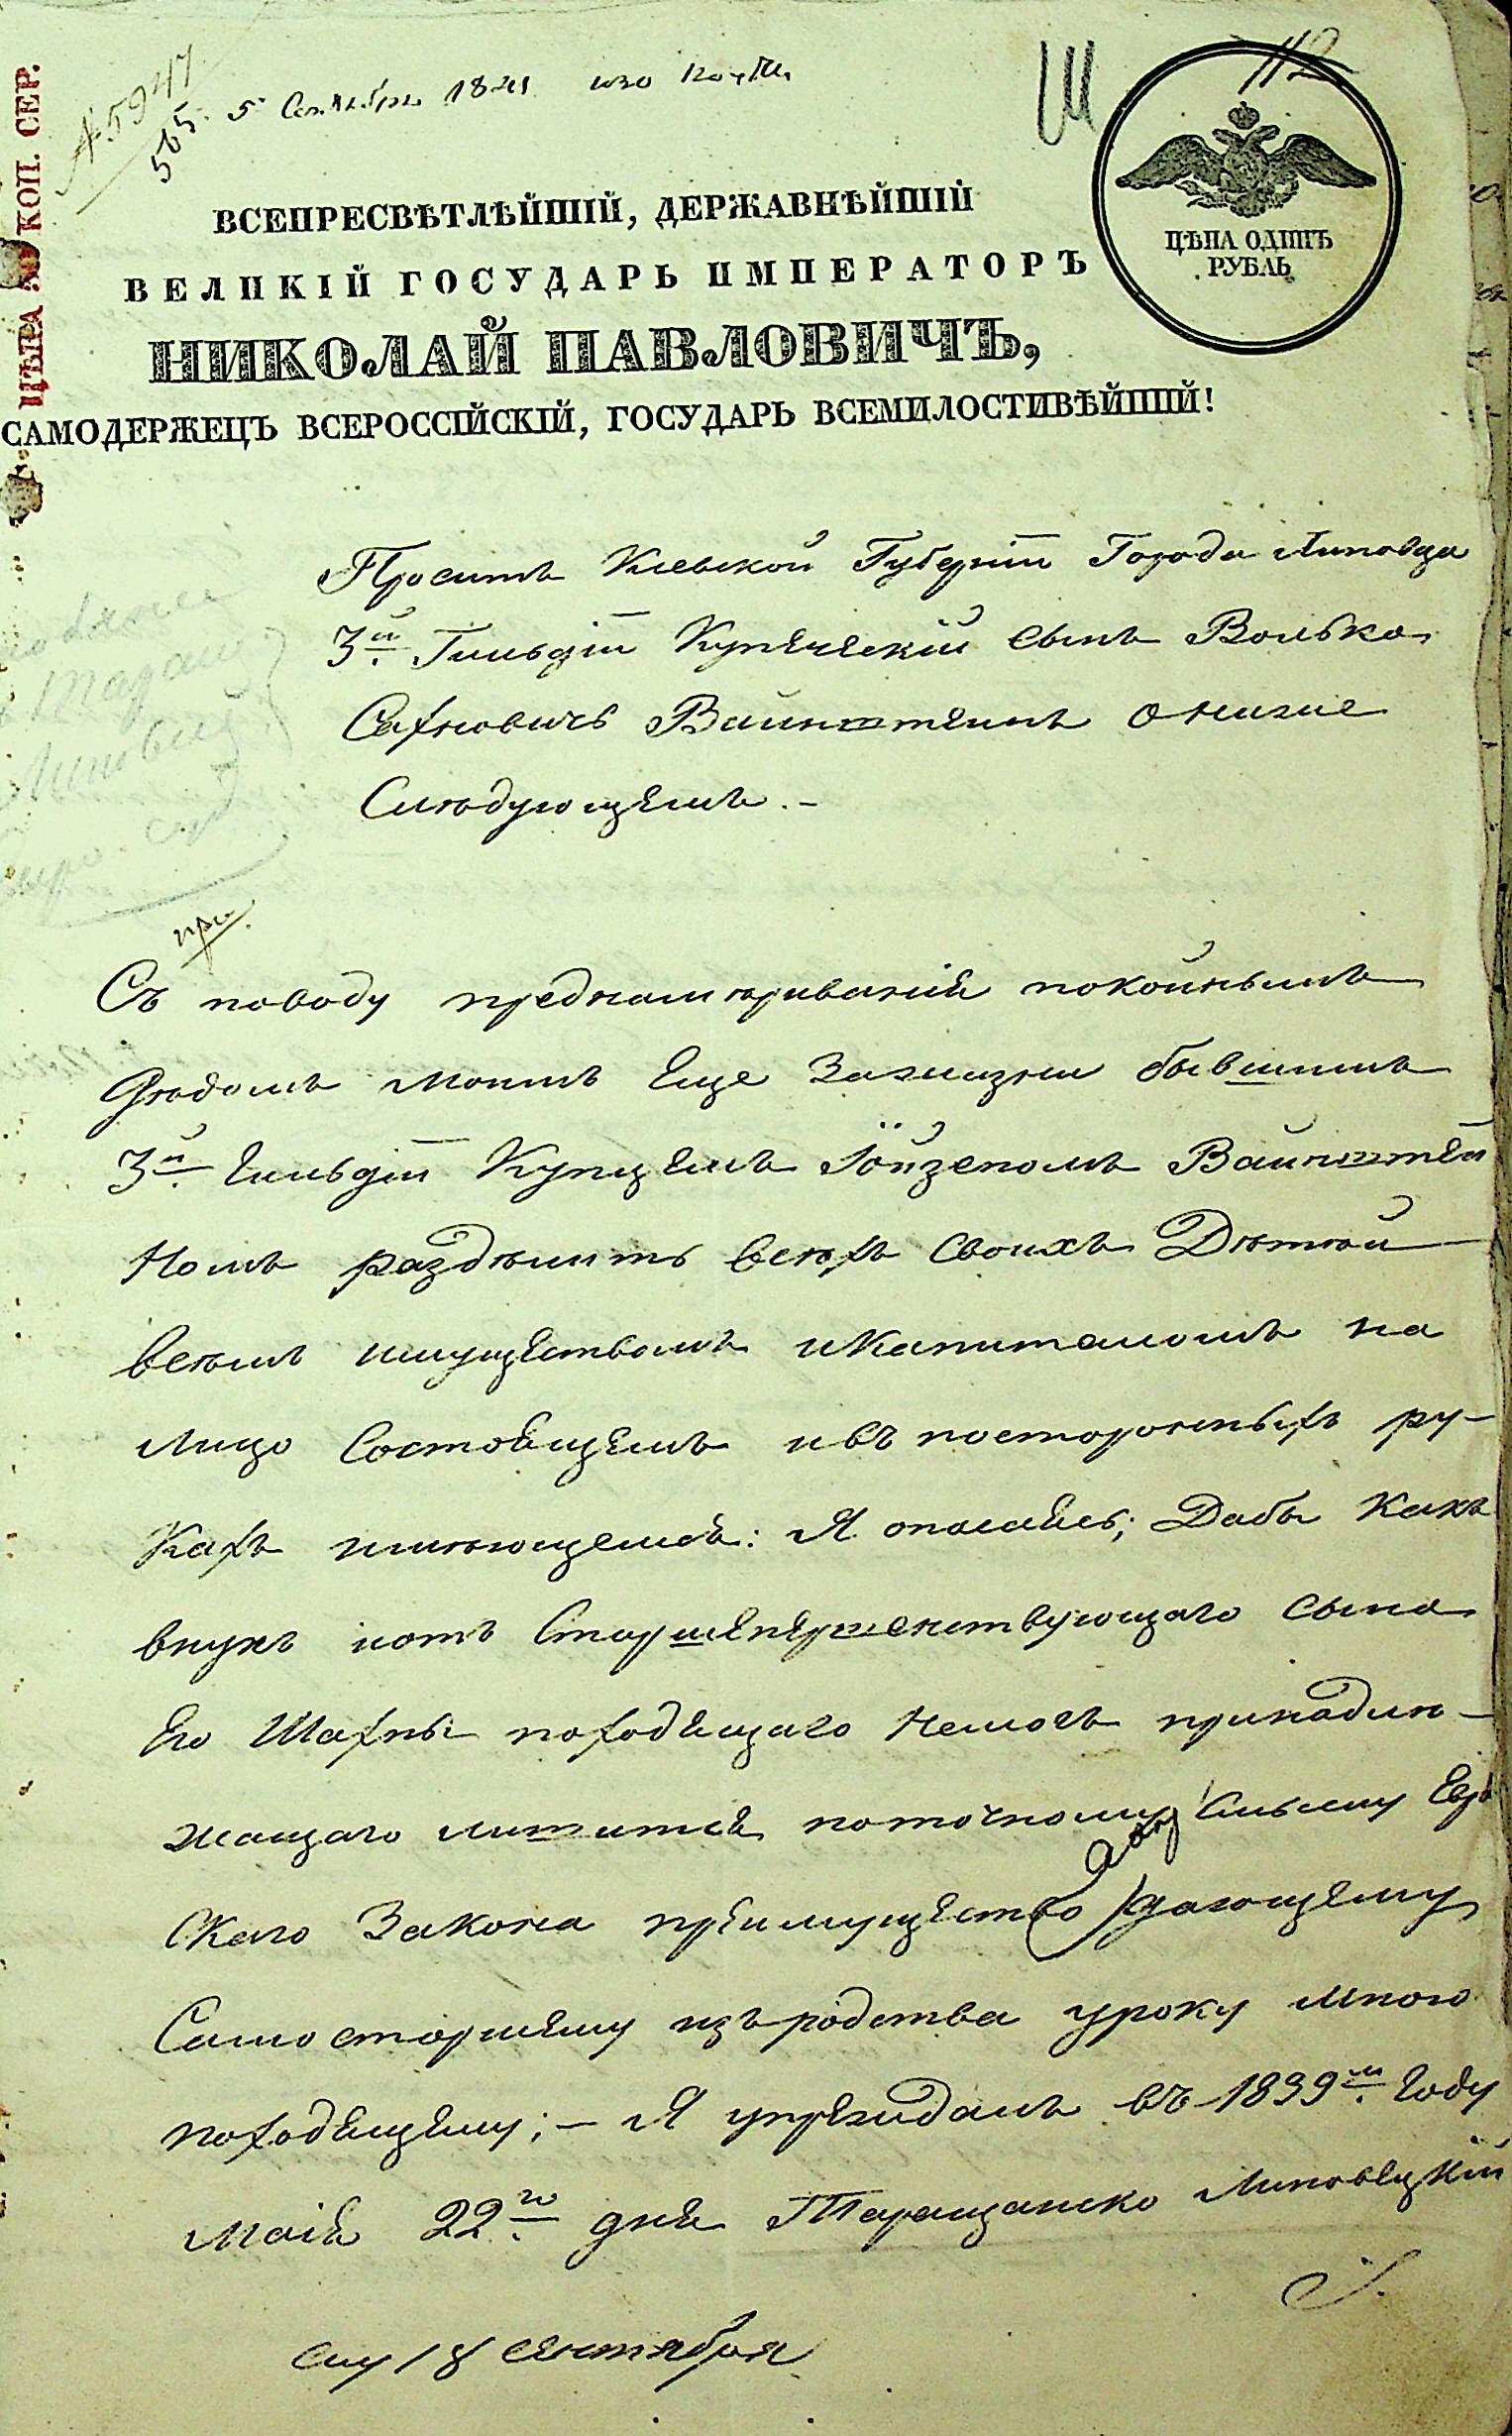 № 5947
565.
5 Сентября 1841
112
ЦѢНА КОП. СЕР.
ЦѢНА ОДИНЪ
РУБЛЬ
ВСЕПРЕСВѢТЛѢЙШІЙ, ДЕРЖАВНѢЙШІЙ
ВЕЛИКІЙ ГОСУДАРЬ ИМПЕРАТОРЪ
НИКОЛАЙ ПАВЛОВИЧЪ,
САМОДЕРЖЕЦЪ ВСЕРОССІЙСКІЙ, ГОСУДАРЬ ВСЕМИЛОСТИВѢЙШІЙ!
Проситъ Кіевской Губерніи Города Липовца
3й Гильдіи Купеческій сынъ Волько
Сахновичъ Вайнштейнъ о ниже
Слѣдующемъ. –
при
Съ поводу преднамѣриваній покойнымъ
Дѣдомъ моимъ еще зажизни бывшимъ
3й гильдіи Купцемъ Іойзепомъ Вайнштей
номъ раздѣлить всѣхъ своихъ Дѣтей
всемъ имуществомъ икапиталомъ на
лицо состоящемъ ивъ постороннихъ ру–
кахъ имѣющемся: Я опасаясь; Дабы какъ
внукъ иотъ старшепершенствующаго сына
Его Шахны походящаго немогъ принадле–
жащаго лишится поточному смыслу Евр
скаго Закона преимущество дающему
Само старшему изъ родства уроку мною
походящему; – Я упреждалъ въ 1839м году
маія 22го дня Таращанско Липовецкій
слу 18 сентября